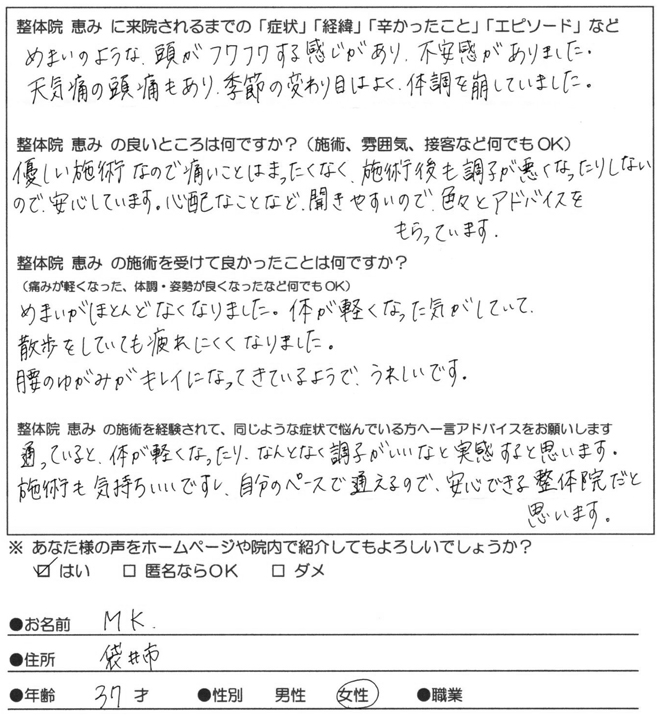 整体院 恵み に来院されるまでの「症状」「経緯」「辛かったこと」「エピソード」など
めまいのような、頭がフワフワする感じがあり、不安感がありました。
天気痛の頭痛もあり、季節の変わり目はよく、体調を崩していました。
整体院 恵み の良いところは何ですか？（施術、雰囲気、接客など何でもOK）
優しい施術なので痛いことはまったくなく、施術後も調子が悪くなったりしない
ので、安心しています。心配なことなど、聞きやすいので、色々とアドバイスを
もらっています。
整体院 恵み の施術を受けて良かったことは何ですか？
（痛みが軽くなった、体調・姿勢が良くなったなど何でもOK）
めまいがほとんどなくなりました。体が軽くなった気がしていて、
散歩をしていても疲れにくくなりました。
腰のゆがみがキレイになってきているようで、うれしいです。
整体院 恵み の施術を経験されて、同じような症状で悩んでいる方へ一言アドバイスをお願いします
通っていると、体が軽くなったり、なんとなく調子がいいなと実感すると思います。
施術も気持ちいいですし、自分のペースで通えるので、安心できる整体院だと
思います。
※ あなた様の声をホームページや院内で紹介してもよろしいでしょうか？
☑ はい □ 匿名ならOK □ ダメ
●お名前 M K.
●住所 袋井市
●年齢 37 才 ●性別 男性 女性 ●職業